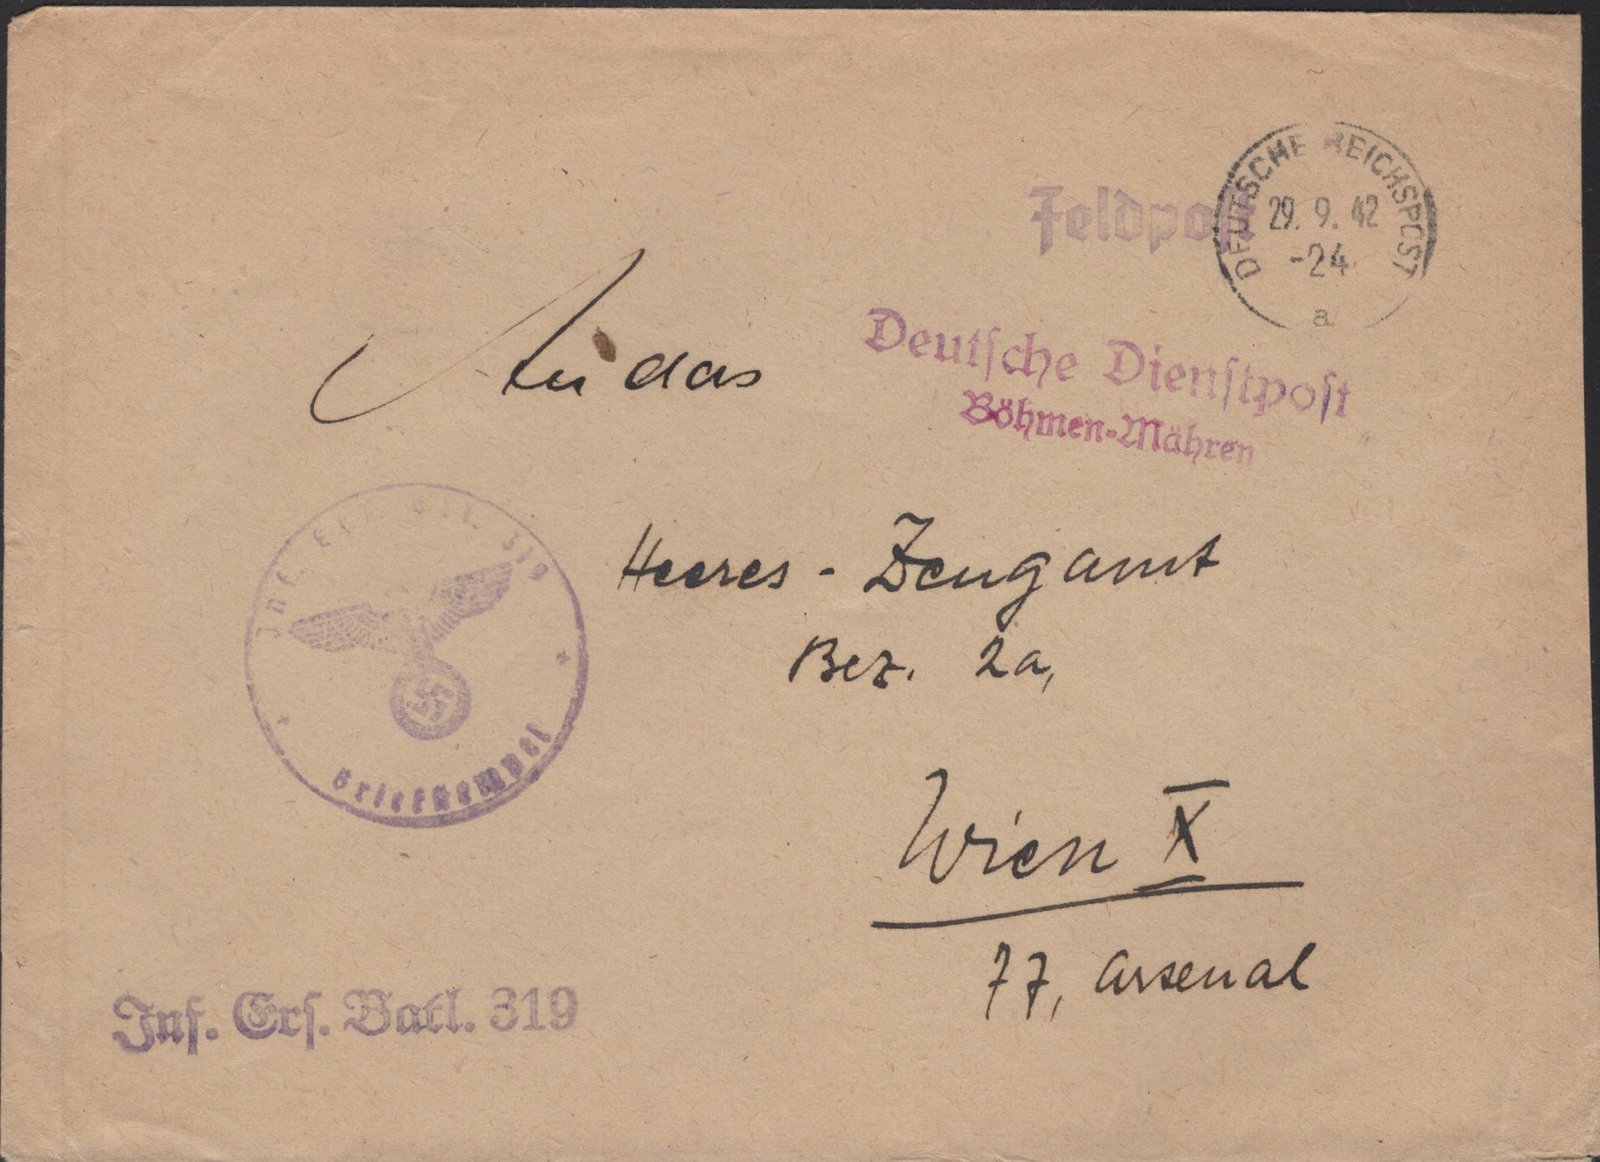 Feldpost
DEUTSCHE REICHSPOST
29. 9. 42
-24
a
Deutsche Dienstpost
Böhmen-Mähren
An das
Heeres-Zeugamt
Bez. 2a,
Wien X
77, Arsenal
Inf. Ers. Btl. 319
Briefstempel
Inf. Ers. Batl. 319